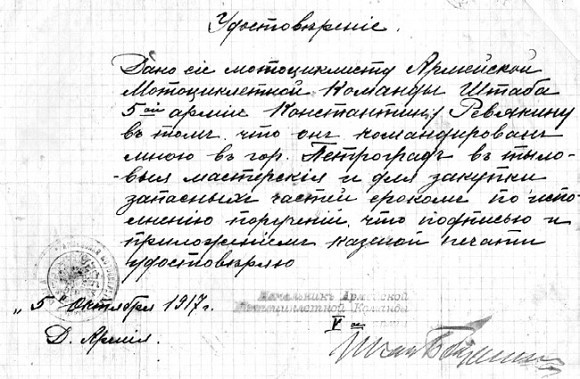 Удостовѣреніе.
Дано сіе мотоциклисту Армейской
Мотоциклетной Команды Штаба
5ой арміи Константину Ревякину
въ томъ, что онъ командированъ
мною въ гор. Петроградъ въ тыло-
-выя мастерскія и для закупки
запасныхъ частей срокомъ по испо-
лненію порученій, что подписью и
приложеніемъ казенной печати
удостовѣряю
"5 Октября 1917 г.
Начальникъ Армейской
Мотоциклетной Команды
Д. Армія.
V